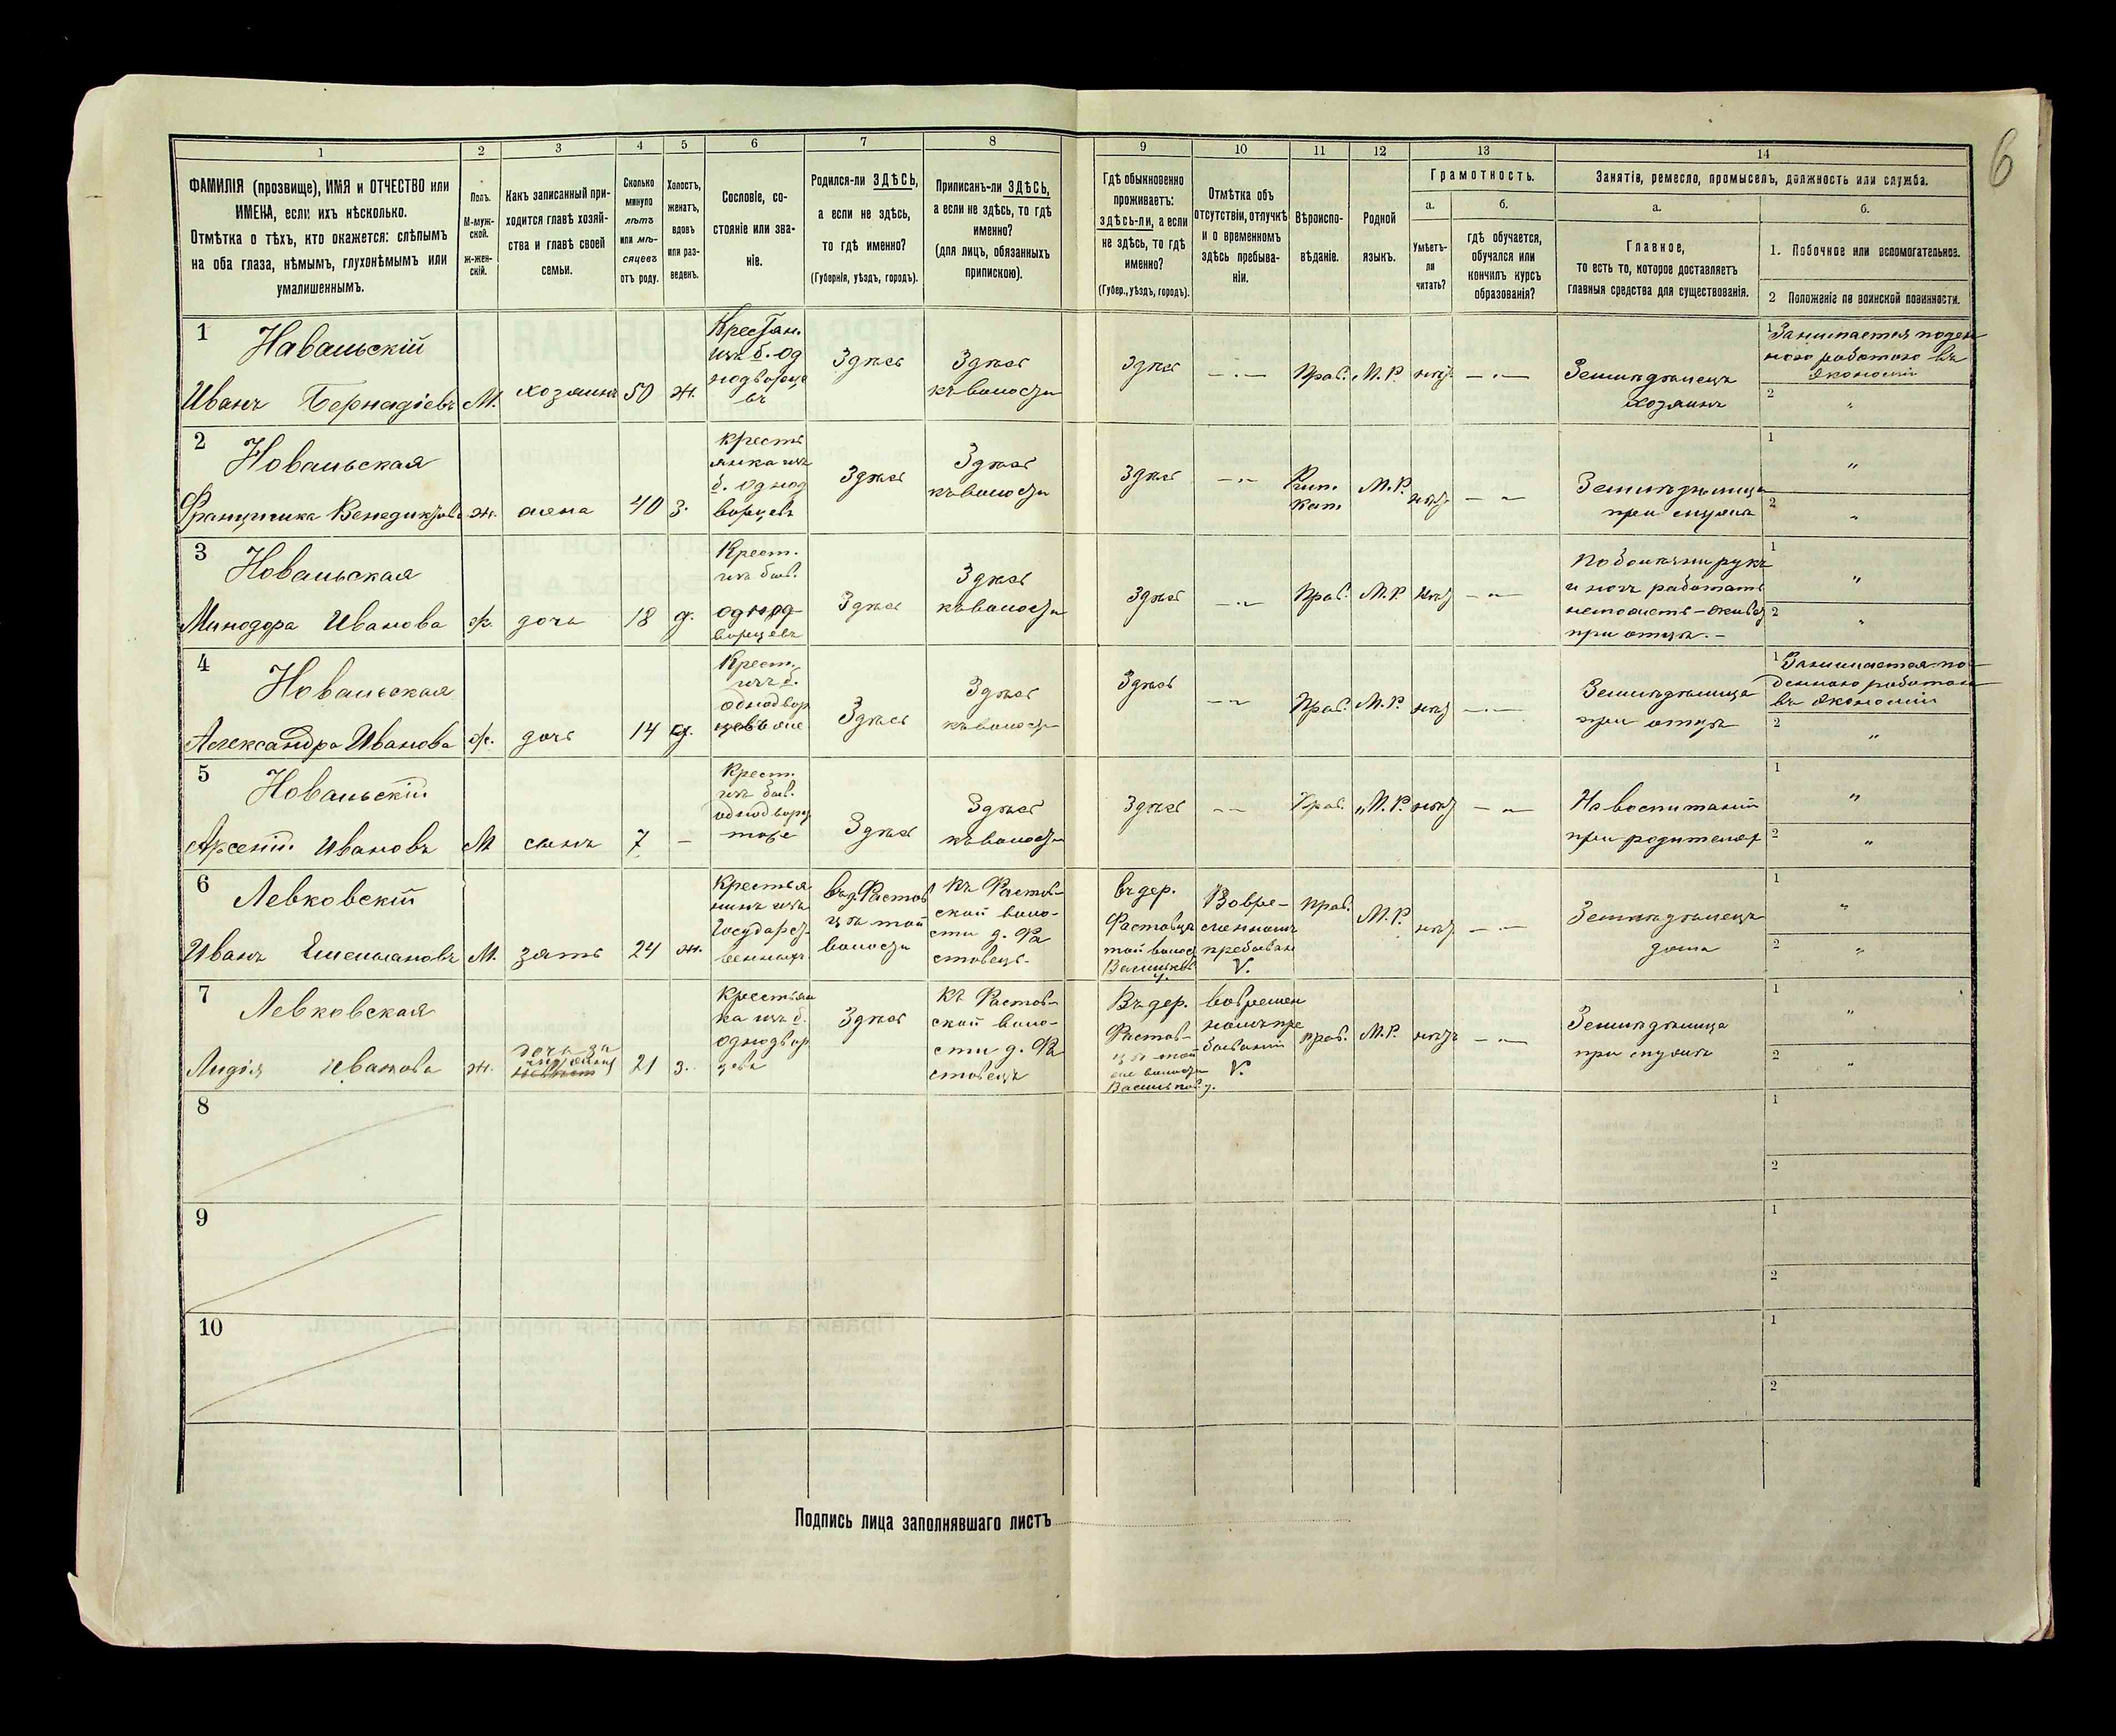 6
1 2 3 4 5 6 7 8 9 10 11 12 13 14
ФАМИЛІЯ (прозвище), ИМЯ и ОТЧЕСТВО или
ИМЕНА, если ихъ нѣсколько.
Отмѣтка о тѣхъ, кто окажется: слѣпымъ
на оба глаза, нѣмымъ, глухонѣмымъ или
умалишеннымъ.
Полъ.
М-муж-
ской.
ж-жен-
скій.
Какъ записанный при-
ходится главѣ хозяй-
ства и главѣ своей
семьи.
Сколько
минуло
лѣтъ
или мѣ-
сяцевъ
отъ роду.
Холостъ,
женатъ,
вдовъ
или раз-
веденъ.
Сословіе, со-
стояніе или зва-
ніе.
Родился-ли ЗДѢСЬ,
а если не здѣсь,
то гдѣ именно?
(Губернія, уѣздъ, городъ).
Приписанъ-ли ЗДѢСЬ,
а если не здѣсь, то гдѣ
именно?
(для лицъ, обязанныхъ
припискою).
Гдѣ обыкновенно
проживаетъ:
здѣсь-ли, а если
не здѣсь, то гдѣ
именно?
(Губер., уѣздъ, городъ).
Отмѣтка объ
отсутствіи, отлучкѣ
и о временномъ
здѣсь пребыва-
ніи.
Вѣроиспо-
вѣданіе.
Родной
языкъ.
Грамотность.
а.
Умѣетъ-
ли
читать?
б.
гдѣ обучается,
обучался или
кончилъ курсъ
образованія?
Занятія, ремесло, промыселъ, должность или служба.
а.
Главное,
то есть то, которое доставляетъ
главныя средства для существованія.
б.
1. Побочное или вспомогательное.
2 Положеніе по воинской повинности.
1
Навальскій
Иванъ Бернадіевъ
М.
хозяинъ
50
ж.
Крестьян.
изъ б. од
нодворце
въ
Здѣсь
Здѣсь
къ волости
Здѣсь
— . —
Прав.
М. Р.
нѣт
— . —
Земледѣлецъ
хозяинъ
1 Занимается поден
ною работою въ
экономіи
2 "
2
Новальская
Францишка Венедиктова
ж.
жена
40
з.
кресть
янка изъ
б. однод
ворцевъ
Здѣсь
Здѣсь
къ волости
Здѣсь
— " —
Рим.
Кат.
М. Р.
нѣт
— " —
Земледѣлица
при мужѣ
1 "
2 "
3
Новальская
Минодора Иванова
ж.
дочь
18
д.
Крест.
изъ быв.
однод
ворцевъ
Здѣсь
Здѣсь
къ волости
Здѣсь
— " —
Прав.
М. Р.
нѣт
— " —
По болѣзни рукъ
и ногъ работать
не можетъ – живетъ
при отцѣ. –
1 "
2 "
4
Новальская
Александра Иванова
ж.
дочь
14
д.
Крест.
изъ б.
однодвор
цевъ
Здѣсь
Здѣсь
къ волости
Здѣсь
— " —
Прав.
М. Р.
нѣт
— . —
Земледѣлица
при отцѣ
1 Занимается по
денною работою
въ экономіи
2 "
5
Новальскій
Арсеній Ивановъ
М
сынъ
7
–
Крест.
изъ быв.
однодворц
тоже
Здѣсь
Здѣсь
къ волости
Здѣсь
— —
Прав.
М. Р.
нѣт
— " —
На воспитаніи
при родителях
1 "
2 "
6
Левковскій
Иванъ Емельяновъ
М.
зять
24
ж.
Крестья
нинъ изъ
Государст
венныхъ
въ д. Фастов
цѣ той
волости
къ Фастов-
ской воло-
сти д. Фа
стовецъ.
въ дер.
Фастовцѣ
той волос
Васильков
у.
Во вре-
менномъ
пребыван
V.
Прав.
М. Р.
нѣт
— . —
Земледѣлецъ
дома
1 "
2 "
7
Левковская
Лидія Иванова
ж.
дочь за
21
з.
крестьян
ка изъ б.
однодвор
цевъ
Здѣсь
къ Фастов-
ской воло-
сти д. Фа
стовецъ
Въ дер.
Фастов-
цѣ той
же волости
Васильков у.
во времен
номъ пре
бываніи
V.
прав.
М. Р.
нѣтъ
— . —
Земледѣлица
при мужѣ
1 "
2 "
8
1
2
9
1
2
10
1
2
Подпись лица заполнявшаго листъ